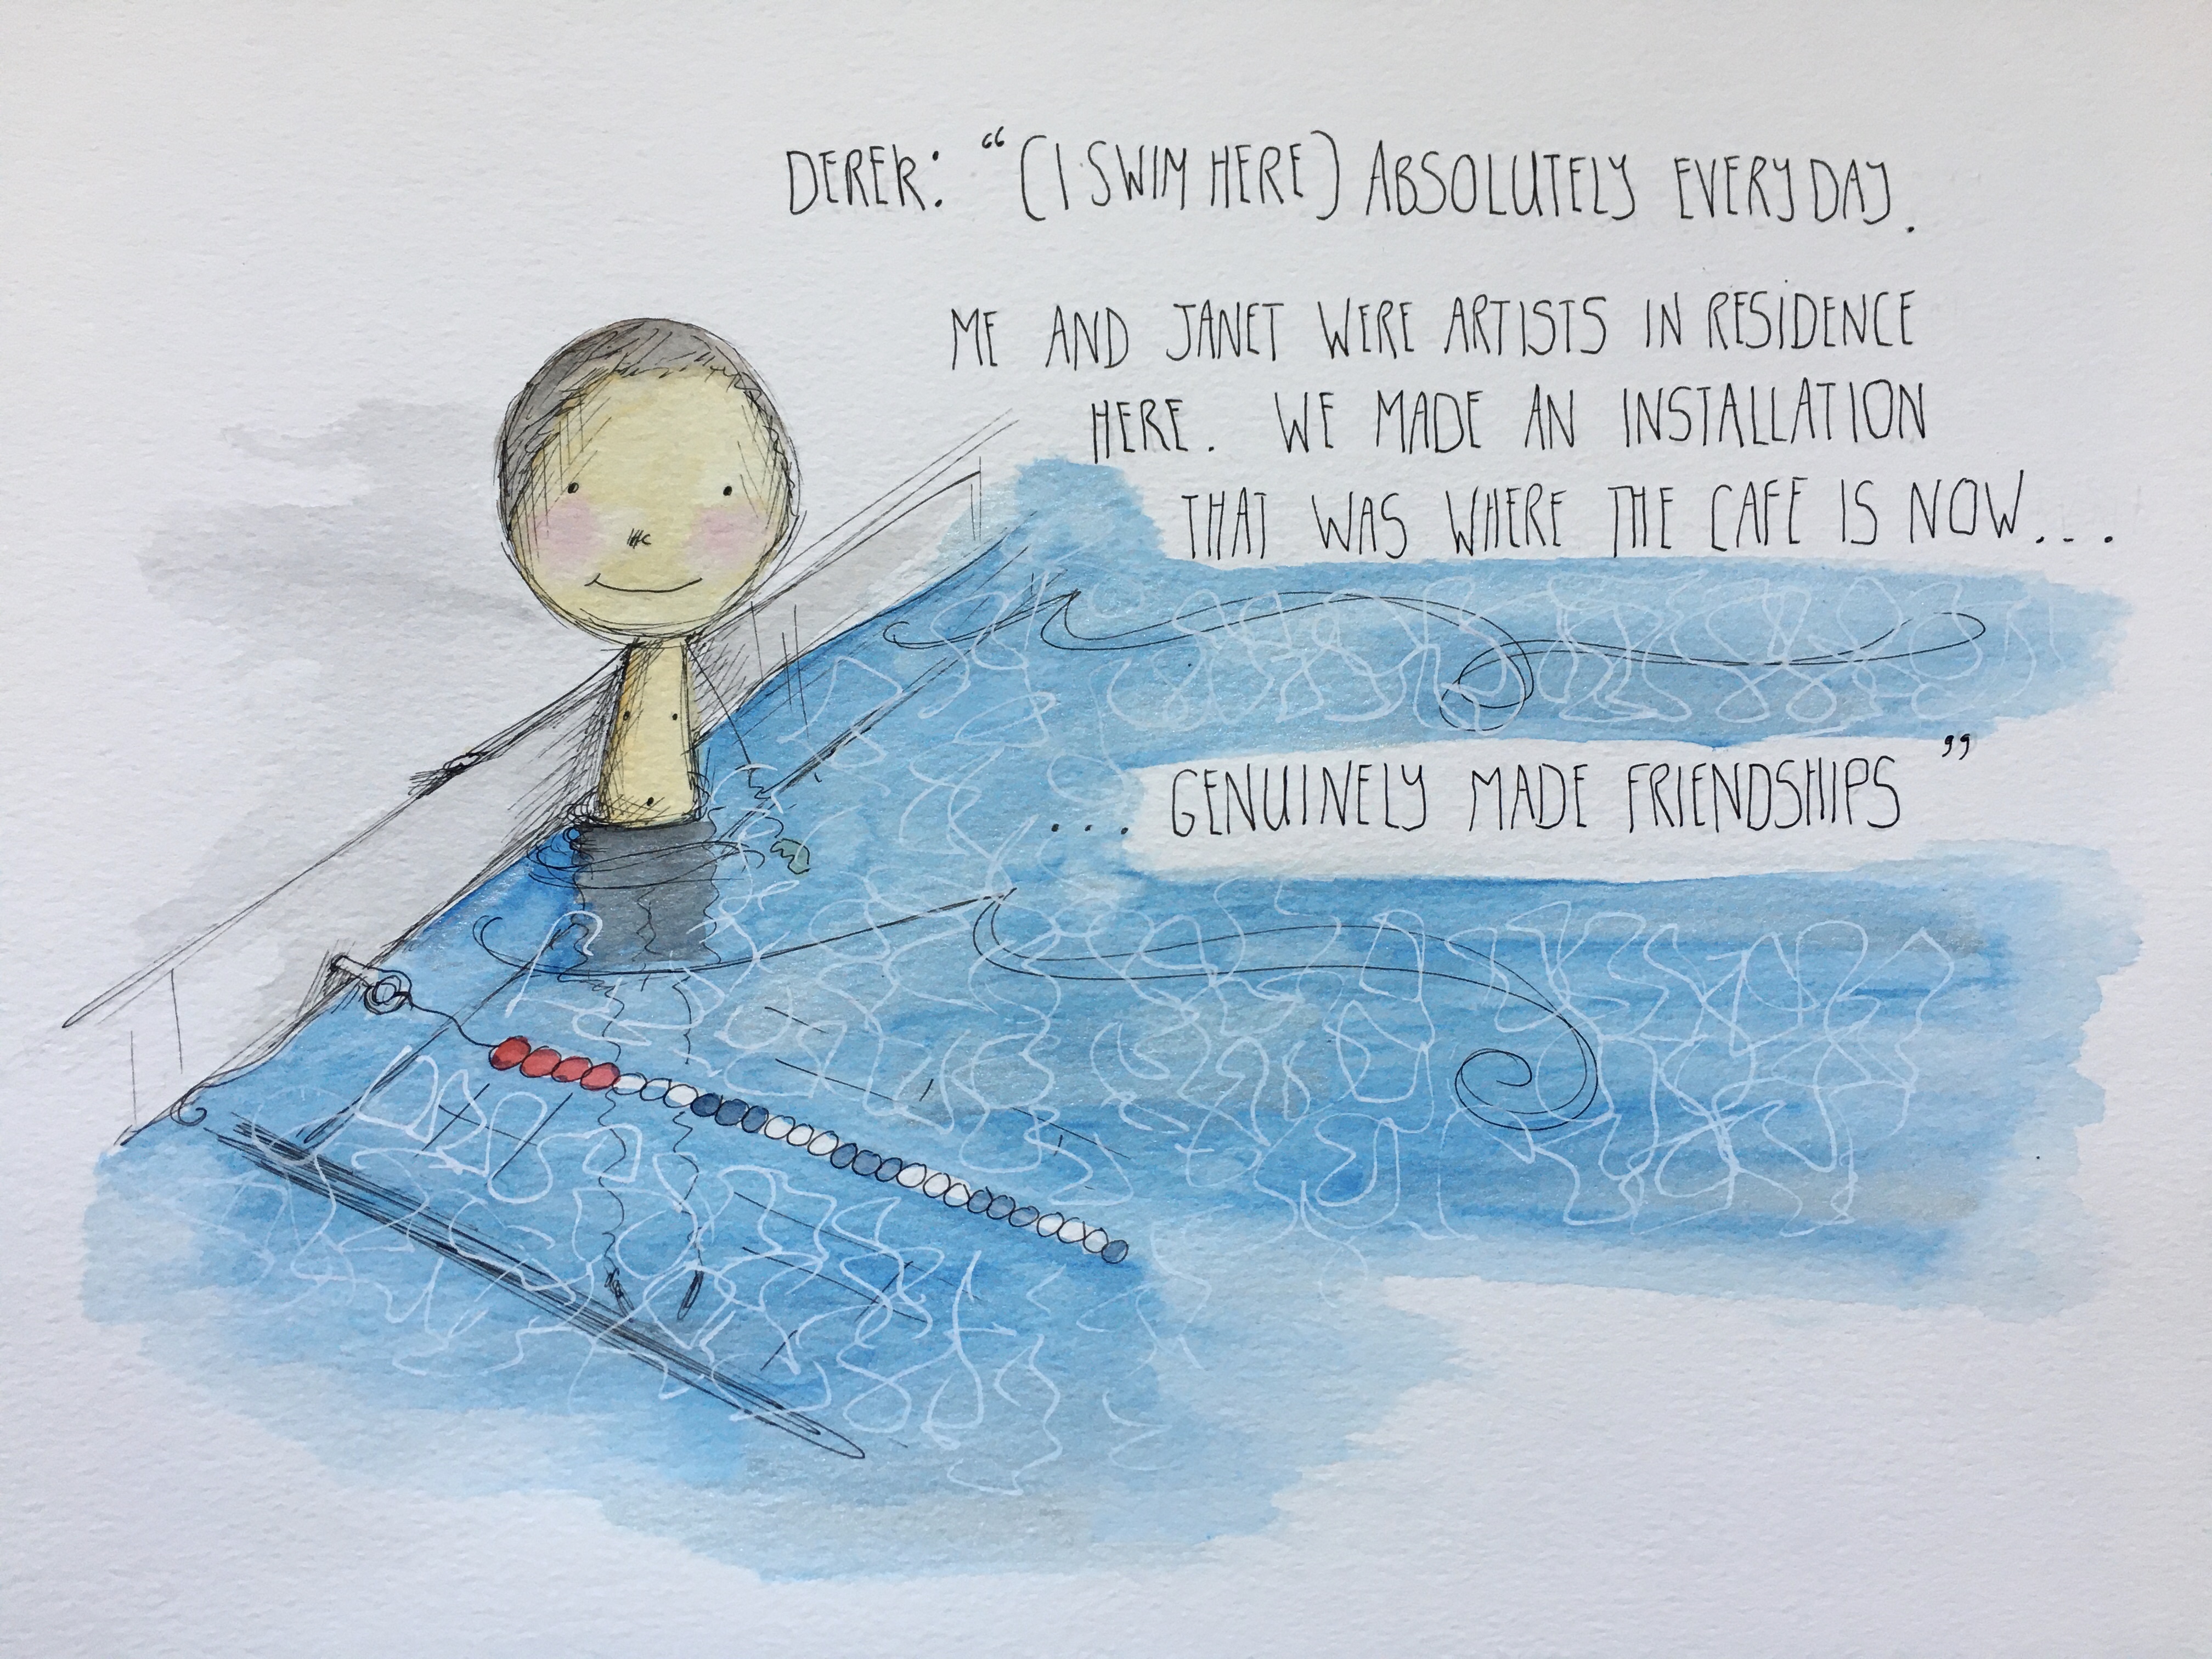 DEREK: “(I SWIM HERE) ABSOLUTELY EVERYDAY.
ME AND JANET WERE ARTISTS IN RESIDENCE
HERE. WE MADE AN INSTALLATION
THAT WAS WHERE THE CAFE IS NOW...
... GENUINELY MADE FRIENDSHIPS”